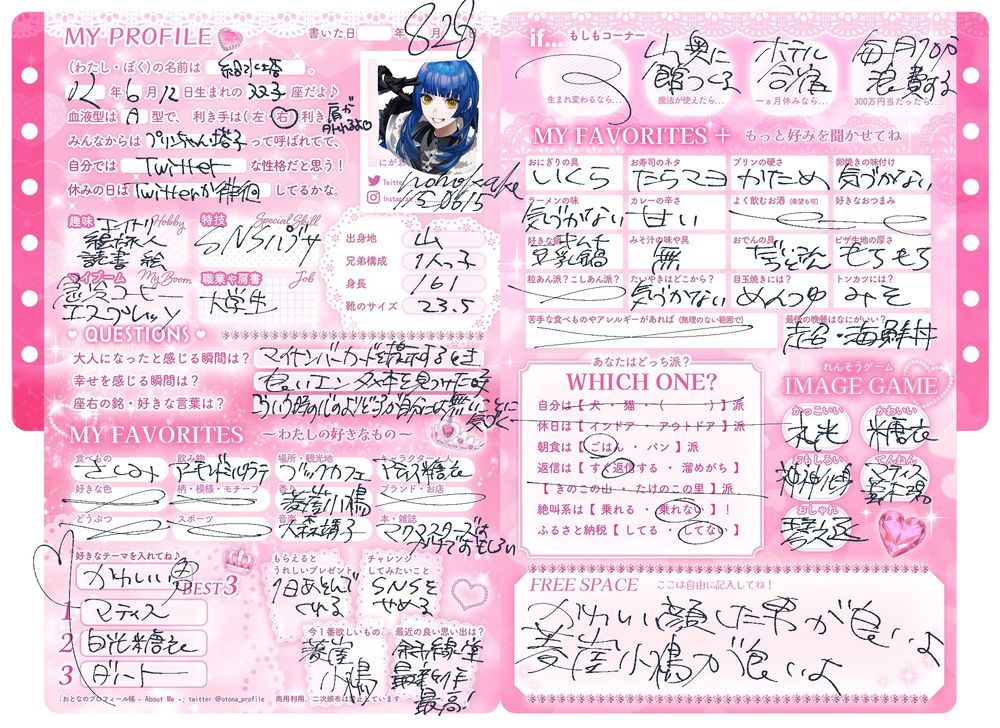 MY PROFILE
書いた日 年 828 日
(わたし・ぼく)の名前は 。
12年6月12日生まれの双子座だよ♪
血液型はA型で、利き手は(左・右)利き
みんなからはプリちゃん 塔子って呼ばれてて、
自分ではTwitterな性格だと思う!
休みの日はTwitterか徘徊してるかな。
Twitter
Instagram
趣味 Hobby
読書 絵
特技 Special Skill
SNSパブサ
マイブーム My Boom
エスプレッソ
職業や肩書 Job
大学生
出身地 山
兄弟構成 1人っ子
身長 161
靴のサイズ 23.5
QUESTIONS
大人になったと感じる瞬間は? マイナンバーカードを提示するとき
幸せを感じる瞬間は? 良いエンタメ本を見つけた時
座右の銘・好きな言葉は?
MY FAVORITES ~わたしの好きなもの~
食べもの さしみ
飲み物 アーモンドミルクラテ
場所・観光地 ブックカフェ
キャラクター・人
好きな色
柄・模様・モチーフ
香り
ブランド・お店
どうぶつ
スポーツ
音楽 大森靖子
本・雑誌
好きなテーマを入れてね♪
かわいい男
BEST3
1 マティス
2 白光糖衣
3 ダート
もらえるとうれしいプレゼント
チャレンジしてみたいこと
SNSをやめる
今1番欲しいもの
最近の良い思い出は?
斜線堂
最新作
最高!
「おとなのプロフィール帳 - About Me -」twitter @otona_profile 商用利用、二次頒布は禁止しています。
if... もしもコーナー
山奥に館つくる
ホテル合宿
浪費する
生まれ変わるなら...
魔法が使えたら...
一ヵ月休みなら...
300万円当たったら...
MY FAVORITES + もっと好みを聞かせてね
おにぎりの具 いくら
お寿司のネタ たらマヨ
プリンの硬さ かため
卵焼きの味付け 気づかない
ラーメンの味 気づかない
カレーの辛さ 甘い
よく飲むお酒(希望も可)
好きなおつまみ
好きな鍋 豆乳鍋
みそ汁の味や具 無
おでんの具
ピザ生地の厚さ もちもち
粒あん派?こしあん派?
たいやきはどこから? 気づかない
目玉焼きには? めんつゆ
トンカツには? みそ
苦手な食べものやアレルギーがあれば(無理のない範囲で)
最後の晩餐はなにがいい?
超・海鮮丼
あなたはどっち派?
WHICH ONE?
自分は【 犬 ・ 猫 ・( )】派
休日は【 インドア ・ アウトドア 】派
朝食は【 ごはん ・ パン 】派
返信は【 すぐ返信する ・ 溜めがち 】
【 きのこの山 ・ たけのこの里 】派
絶叫系は【 乗れる ・ 乗れない 】!
ふるさと納税【 してる ・ してない 】
れんそうゲーム
IMAGE GAME
かっこいい
かわいい 糖衣
おもしろい
てんねん
おしゃれ
FREE SPACE ここは自由に記入してね!
かわいい顔した男が良いよ
菱崖小鳩が良いよ